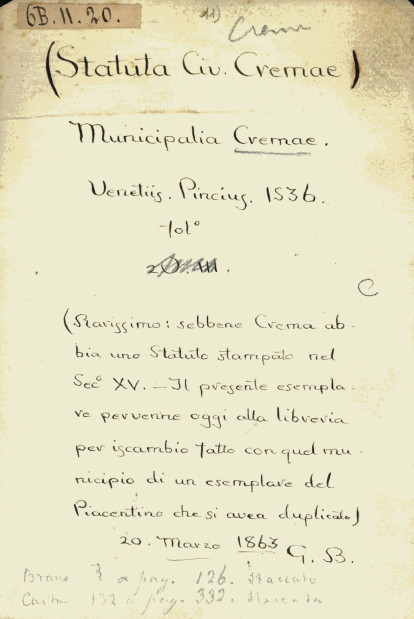 6B.11.20.
Crema
(Statuta Civ. Cremae)
Municipalia Cremae.
Venetiis. Pincius. 1536.
fol°
C
(Rarissimo: sebbene Crema ab-
bia uno Statuto stampato nel
Sec° XV. – Il presente esempla-
re pervenne oggi alla libreria
per iscambio fatto con quel mu-
nicipio di un esemplare del
Piacentino che si avea duplicato)
20. Marzo 1863 G. B.
a pag. 126. Staccato
132 a pag. 332.